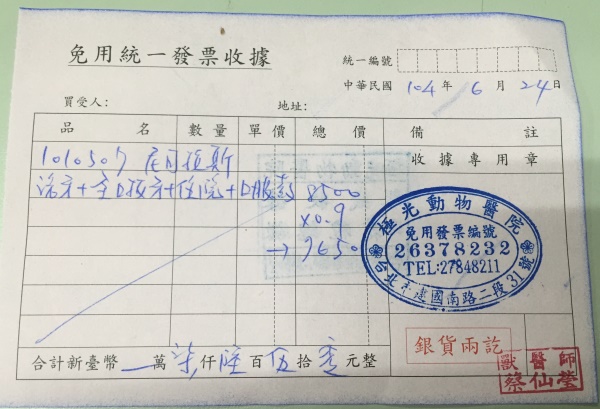 免用統一發票收據
統一編號
中華民國 104 年 6 月 24 日
買受人： 地址：
品名 數量 單價 總價 備註
收據專用章
1010507 尼可拉斯
洗牙+全口拔牙+住院+口服藥 8500
x0.9
→ 7650
極光動物醫院
免用發票編號
26378232
TEL:27848211
台北市建國南路二段31號
銀貨兩訖
合計新臺幣 萬 柒 仟 陸 百 伍 拾 零 元整
獸醫師
蔡仙瑩